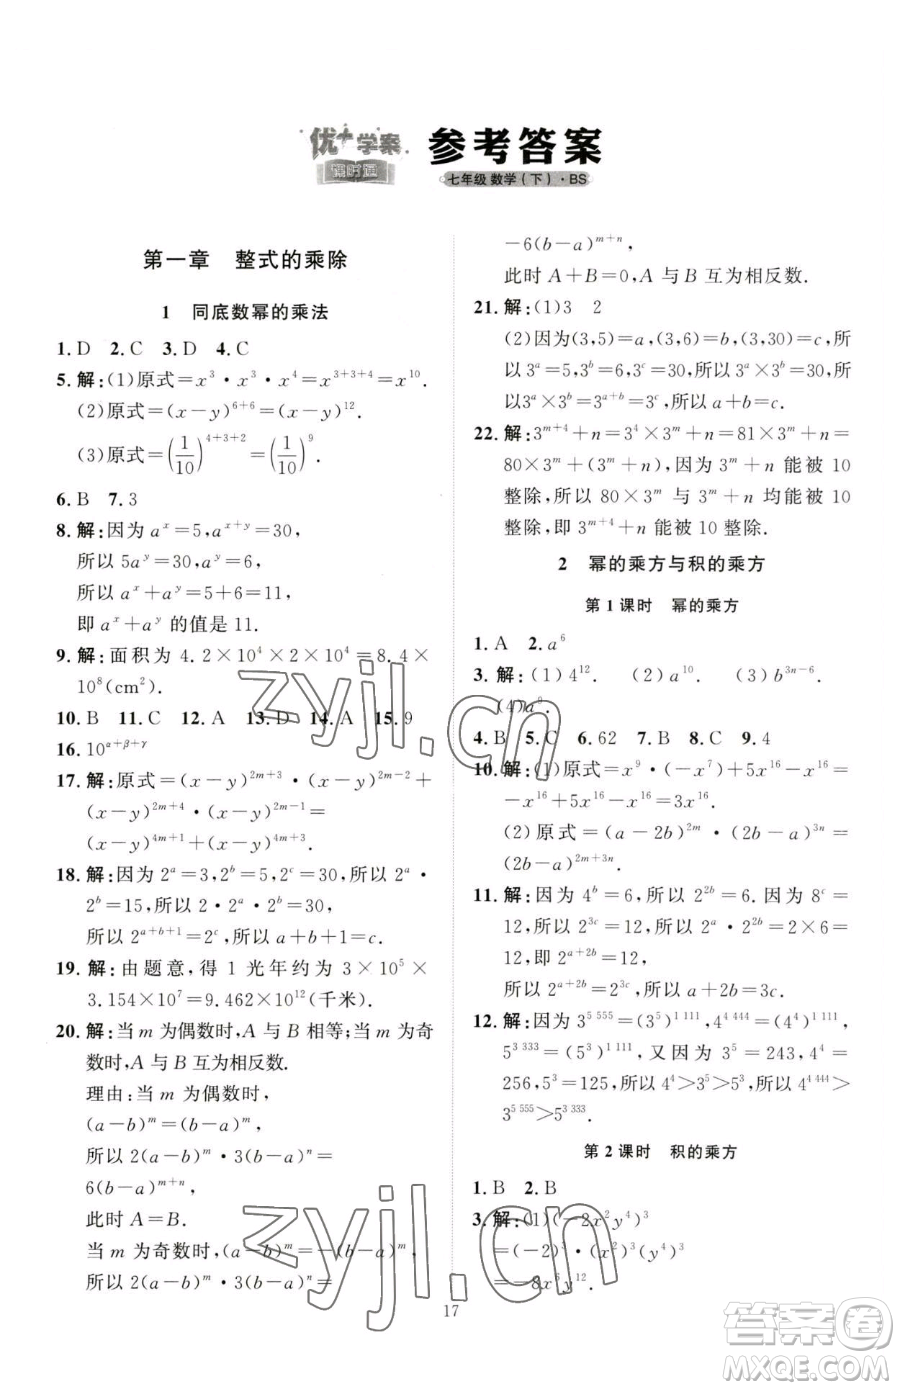 优+学案
课时通
参考答案
七年级 数学(下)·BS
第一章 整式的乘除
1 同底数幂的乘法
1. D 2. C 3. D 4. C
5. 解:(1)原式=x³·x³·x⁴=x³⁺³⁺⁴=x¹⁰.
(2)原式=(x-y)⁶⁺⁶=(x-y)¹².
(3)原式=(1/10)⁴⁺³⁺²=(1/10)⁹.
6. B 7. 3
8. 解:因为 a^x=5,a^(x+y)=30,
所以 5a^y=30,a^y=6,
所以 a^x+a^y=5+6=11,
即 a^x+a^y 的值是 11.
9. 解:面积为 4.2×10⁴×2×10⁴=8.4×
10⁸(cm²).
10. B 11. C 12. A 13. D 14. A 15. 9
16. 10^(α+β+γ)
17. 解:原式=(x-y)^(2m+3)·(x-y)^(2m-2)+
(x-y)^(2m+4)·(x-y)^(2m-1)=
(x-y)^(4m+1)+(x-y)^(4m+3).
18. 解:因为 2^a=3,2^b=5,2^c=30,所以 2^a·
2^b=15,所以 2·2^a·2^b=30,
所以 2^(a+b+1)=2^c,所以 a+b+1=c.
19. 解:由题意,得 1 光年约为 3×10⁵×
3.154×10⁷=9.462×10¹²(千米).
20. 解:当 m 为偶数时,A 与 B 相等;当 m 为奇
数时,A 与 B 互为相反数.
理由:当 m 为偶数时,
(a-b)^m=(b-a)^m,
所以 2(a-b)^m·3(b-a)^n=
6(b-a)^(m+n),
此时 A=B.
当 m 为奇数时,(a-b)^m=-(b-a)^m,
所以 2(a-b)^m·3(b-a)^n=
-6(b-a)^(m+n),
此时 A+B=0,A 与 B 互为相反数.
21. 解:(1)3 2
(2)因为(3,5)=a,(3,6)=b,(3,30)=c,所
以 3^a=5,3^b=6,3^c=30,所以 3^a×3^b=3^c,所
以3^a×3^b=3^(a+b)=3^c,所以 a+b=c.
22. 解:3^(m+4)+n=3⁴×3^m+n=81×3^m+n=
80×3^m+(3^m+n),因为 3^m+n 能被 10
整除,所以 80×3^m 与 3^m+n 均能被 10
整除,即 3^(m+4)+n 能被 10 整除.
2 幂的乘方与积的乘方
第 1 课时 幂的乘方
1. A 2. a⁶
3. 解:(1)4¹². (2)a¹⁰. (3)b^(3n-6).
(4)a⁹.
4. B 5. C 6. 62 7. B 8. C 9. 4
10. 解:(1)原式=x⁹·(-x⁷)+5x¹⁶-x¹⁶=
-x¹⁶+5x¹⁶-x¹⁶=3x¹⁶.
(2)原式=(a-2b)^(2m)·(2b-a)^(3n)=
(2b-a)^(2m+3n).
11. 解:因为 4^b=6,所以 2^(2b)=6. 因为 8^c=
12,所以 2^(3c)=12,所以 2^a·2^(2b)=2×6=
12,所以 2^(a+2b)=12,
所以 2^(a+2b)=2^(3c),所以 a+2b=3c.
12. 解:因为 3^(5 555)=(3⁵)^(1 111),4^(4 444)=(4⁴)^(1 111),
5^(3 333)=(5³)^(1 111),又因为 3⁵=243,4⁴=
256,5³=125,所以 4⁴>3⁵>5³,所以 4^(4 444)>
3^(5 555)>5^(3 333).
第 2 课时 积的乘方
1. B 2. B
3. 解:(1)(-2x²y⁴)³
=(-2)³·(x²)³(y⁴)³
=-8x⁶y¹².
17
zyjl.cn
zyjl.cn
答案圈
MXQE.COM